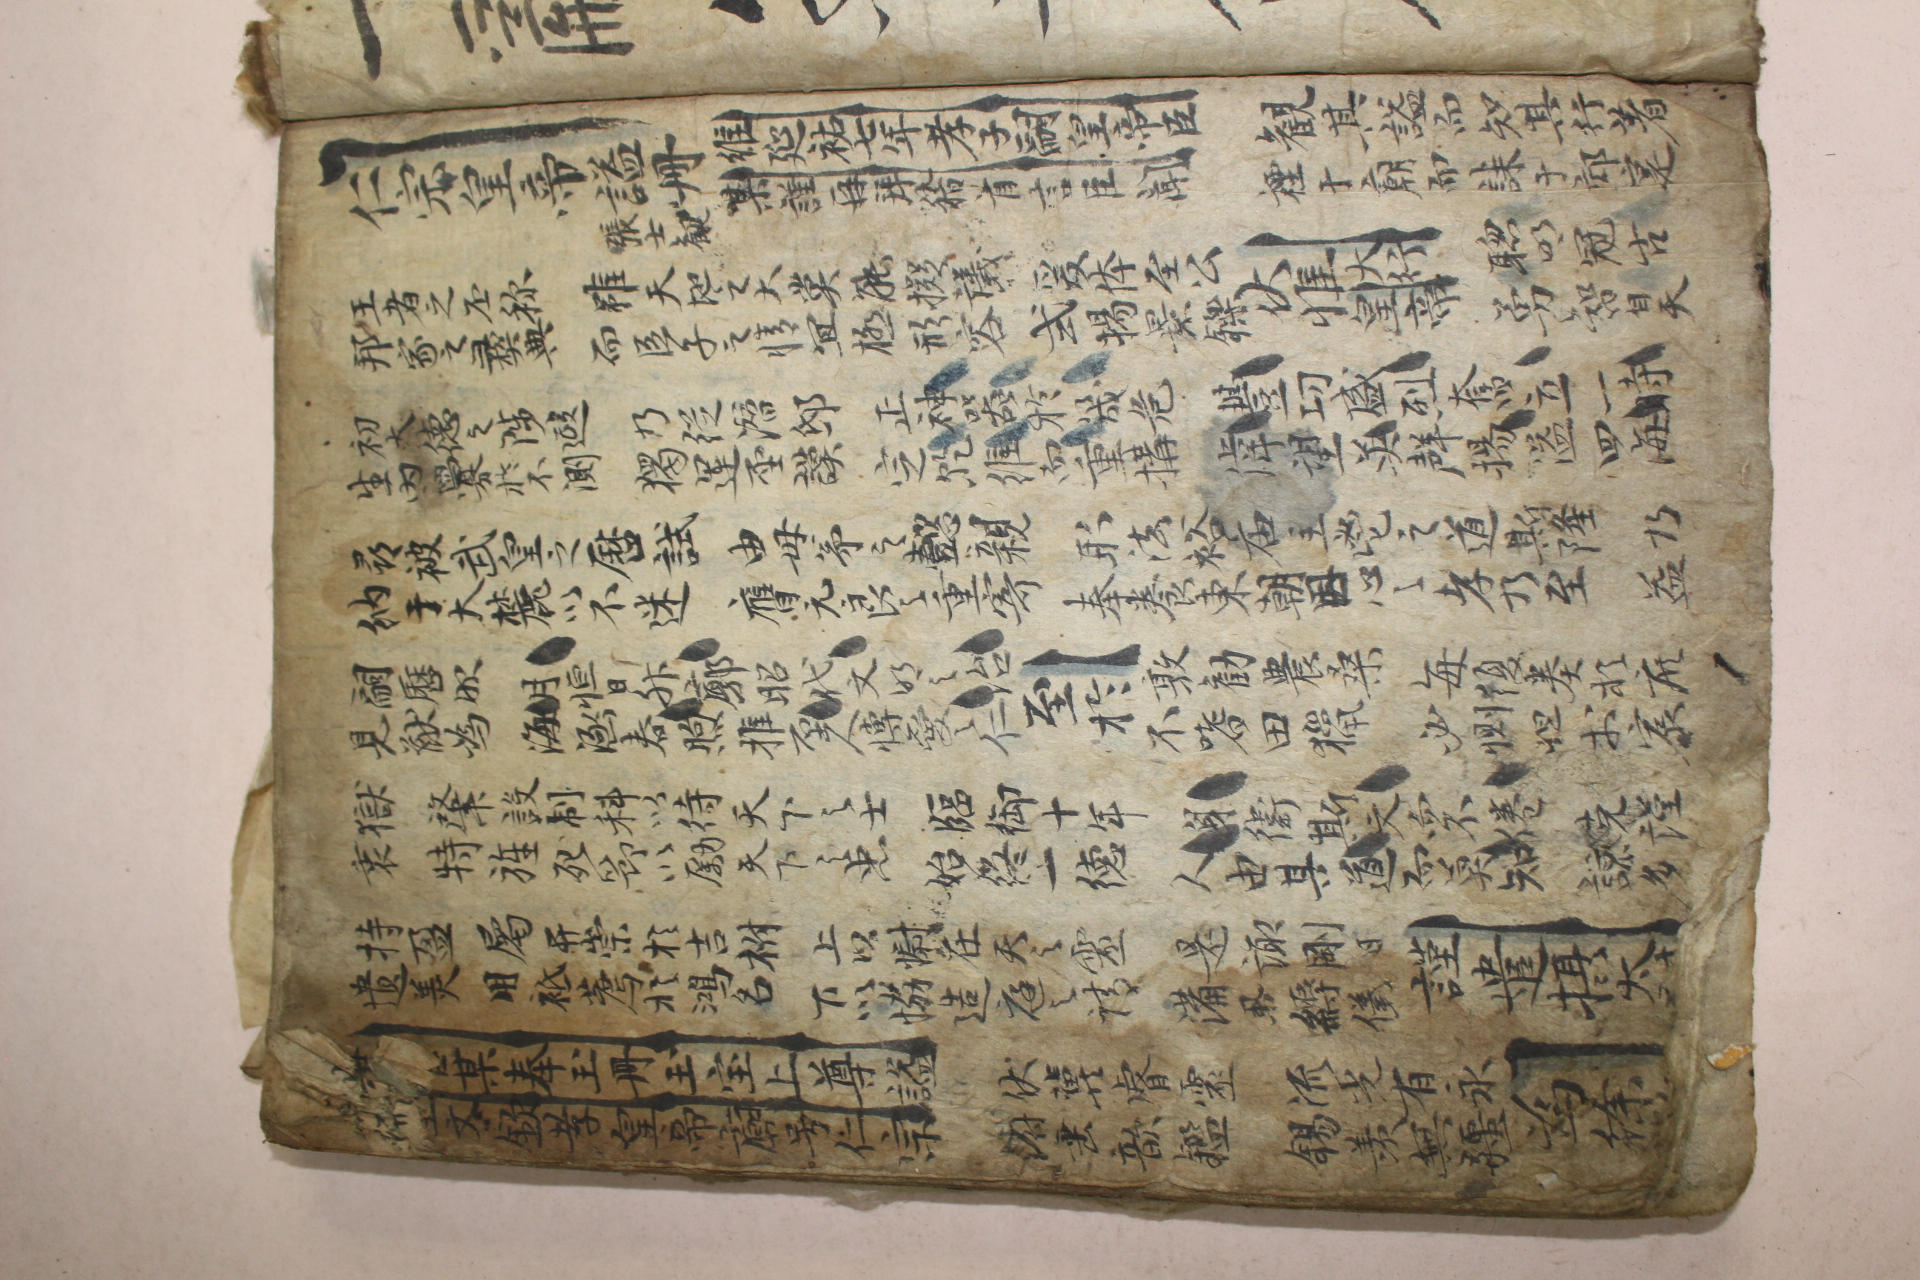 仁宗皇帝諡冊
張士観
維延祐七年孝子嗣皇帝臣
某謹再拜稽首言臣聞
観其諡而知其行著
禋于廟而誄于郊寔
王者之丕称
邦家之彝典
雖天地之大莫能擬議
而臣子之情宜極形容
爰体至公
式揚景鑠
伏惟大行
皇帝
聡明冠古
勇智自天
初大德之陟遐
生内釁於不測
乃從潜邸
獨運丕謨
正神器於幾危
定乾維而重構
豊功盛烈奮立一時
偉望英聲揚溢四海
尋被武皇之曆試
納于大麓以不迷
由母弟之懿親
膺元良之重寄
形法裕庙主鬯之道斯隆
奉養東朝因心之孝乃至
乃
益
嗣歷服
見猷為
月恒日升廓昭代文明之治
海涵春煦推至人博愛之仁
至於
敦勸農桑
不嗜田獵
每復奏於庶
必惻怛於哀
獄
衷
肇設制科以待天下之士
特旌死節以勵天下之忠
臨御十年
始終一德
身衛斯文而不倦
人由其道而莫知
克謹
諒多
持盈
遺美
屬升崇於吉祔
用祗薦於鴻名
上以慰在天之霊
下以恊造庭之請
是諏剛日
備擧縟儀
謹遣攝太
某奉玉冊玉宝上尊諡
文欽孝皇帝廟号仁宗
伏兾睿霊
俯垂歆鑑
流光有永
錫羡無疆